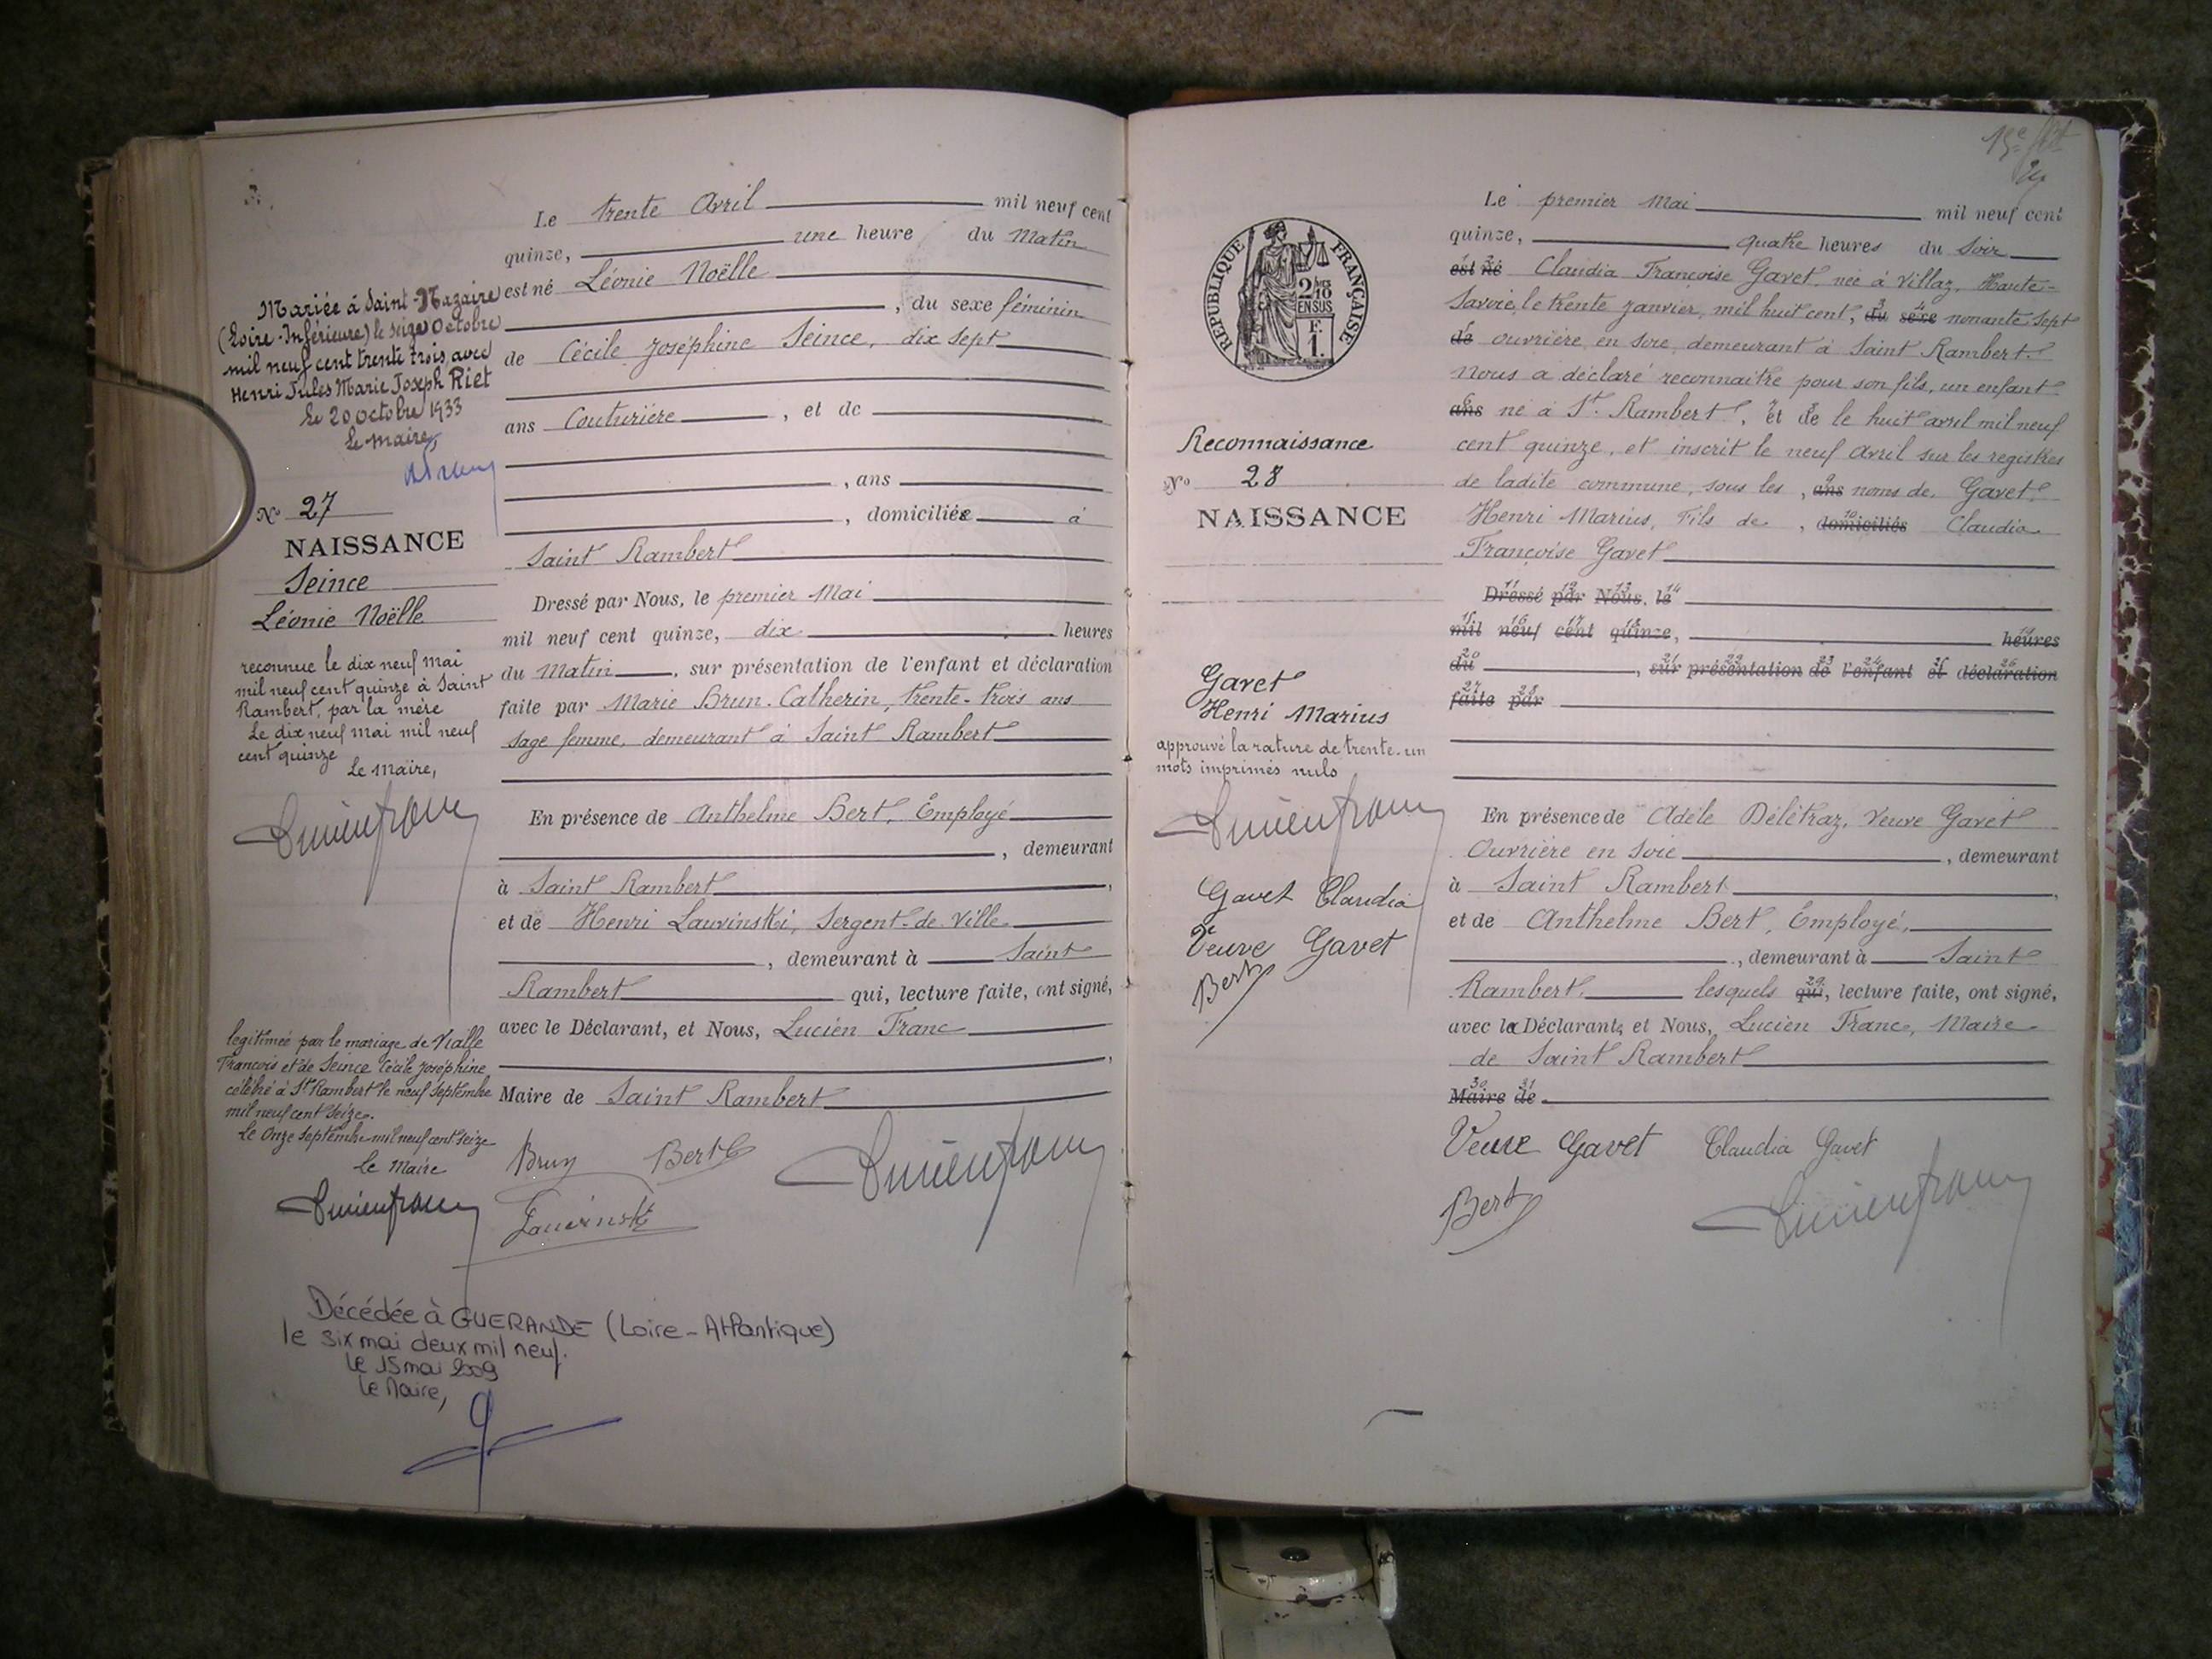 Mariée à Saint-Nazaire
(Loire-Inférieure) le seize Octobre
mil neuf cent trente trois avec
Henri Jules Marie Joseph Riet
Le 20 octobre 1933
Le Maire,
N° 27
NAISSANCE
Seince
Léonie Noëlle
reconnue le dix neuf mai
mil neuf cent quinze à Saint
Rambert, par la mère
Le dix neuf mai mil neuf
cent quinze
Le Maire,
Lucien Franc
légitimée par le mariage de Vialle
François et de Seince Cécile Joséphine
célébré à St Rambert le neuf septembre
mil neuf cent seize.
Le Onze septembre mil neuf cent seize
Le Maire
Lucien Franc
Le trente Avril mil neuf cent
quinze, une heure du Matin
est né Léonie Noëlle
, du sexe féminin
de Cécile Joséphine Seince, dix sept
ans Couturière , et de
, ans
, domiciliée à
Saint Rambert
Dressé par Nous, le premier Mai
mil neuf cent quinze, dix heures
du Matin , sur présentation de l'enfant et déclaration
faite par Marie Brun-Catherin, trente-trois ans
sage femme, demeurant à Saint Rambert
En présence de Anthelme Bert, Employé
, demeurant
à Saint Rambert ,
et de Henri Lauvinski, Sergent-de-Ville
, demeurant à Saint
Rambert qui, lecture faite, ont signé,
avec le Déclarant, et Nous, Lucien Franc
,
Maire de Saint Rambert
Brun Bert Lucien Franc
Lauvinski
Décédée à GUERANDE (Loire-Atlantique)
le six mai deux mil neuf.
le 15 mai 2009
le Maire,
15e
RÉPUBLIQUE FRANÇAISE
2/10
EN SUS
F.
1.
Reconnaissance
N° 28
NAISSANCE
Gavet
Henri Marius
approuvé la rature de trente-un
mots imprimés nuls
Lucien Franc
Gavet Claudia
Veuve Gavet
Bert
Le premier Mai mil neuf cent
quinze, quatre heures du Soir
est né Claudia Françoise Gavet, née à Villaz, Haute-
Savoie, le trente janvier, mil huit cent, du sexe nonante sept
de ouvrière en soie, demeurant à Saint Rambert.
Nous a déclaré reconnaitre pour son fils, un enfant
ans né à St. Rambert, et de le huit avril mil neuf
cent quinze, et inscrit le neuf Avril sur les registres
de ladite commune, sous les , ans noms de Gavet
Henri Marius, Fils de , domiciliés Claudia
Françoise Gavet
Dressé par Nous, le
mil neuf cent quinze, heures
du , sur présentation de l'enfant et déclaration
faite par
En présence de Adèle Délétraz, Veuve Gavet
Ouvrière en Soie , demeurant
à Saint Rambert ,
et de Anthelme Bert, Employé,
, demeurant à Saint
Rambert. lesquels qui, lecture faite, ont signé,
avec la Déclarante, et Nous, Lucien Franc, Maire
de Saint Rambert
Maire de
Veuve Gavet Claudia Gavet
Bert Lucien Franc